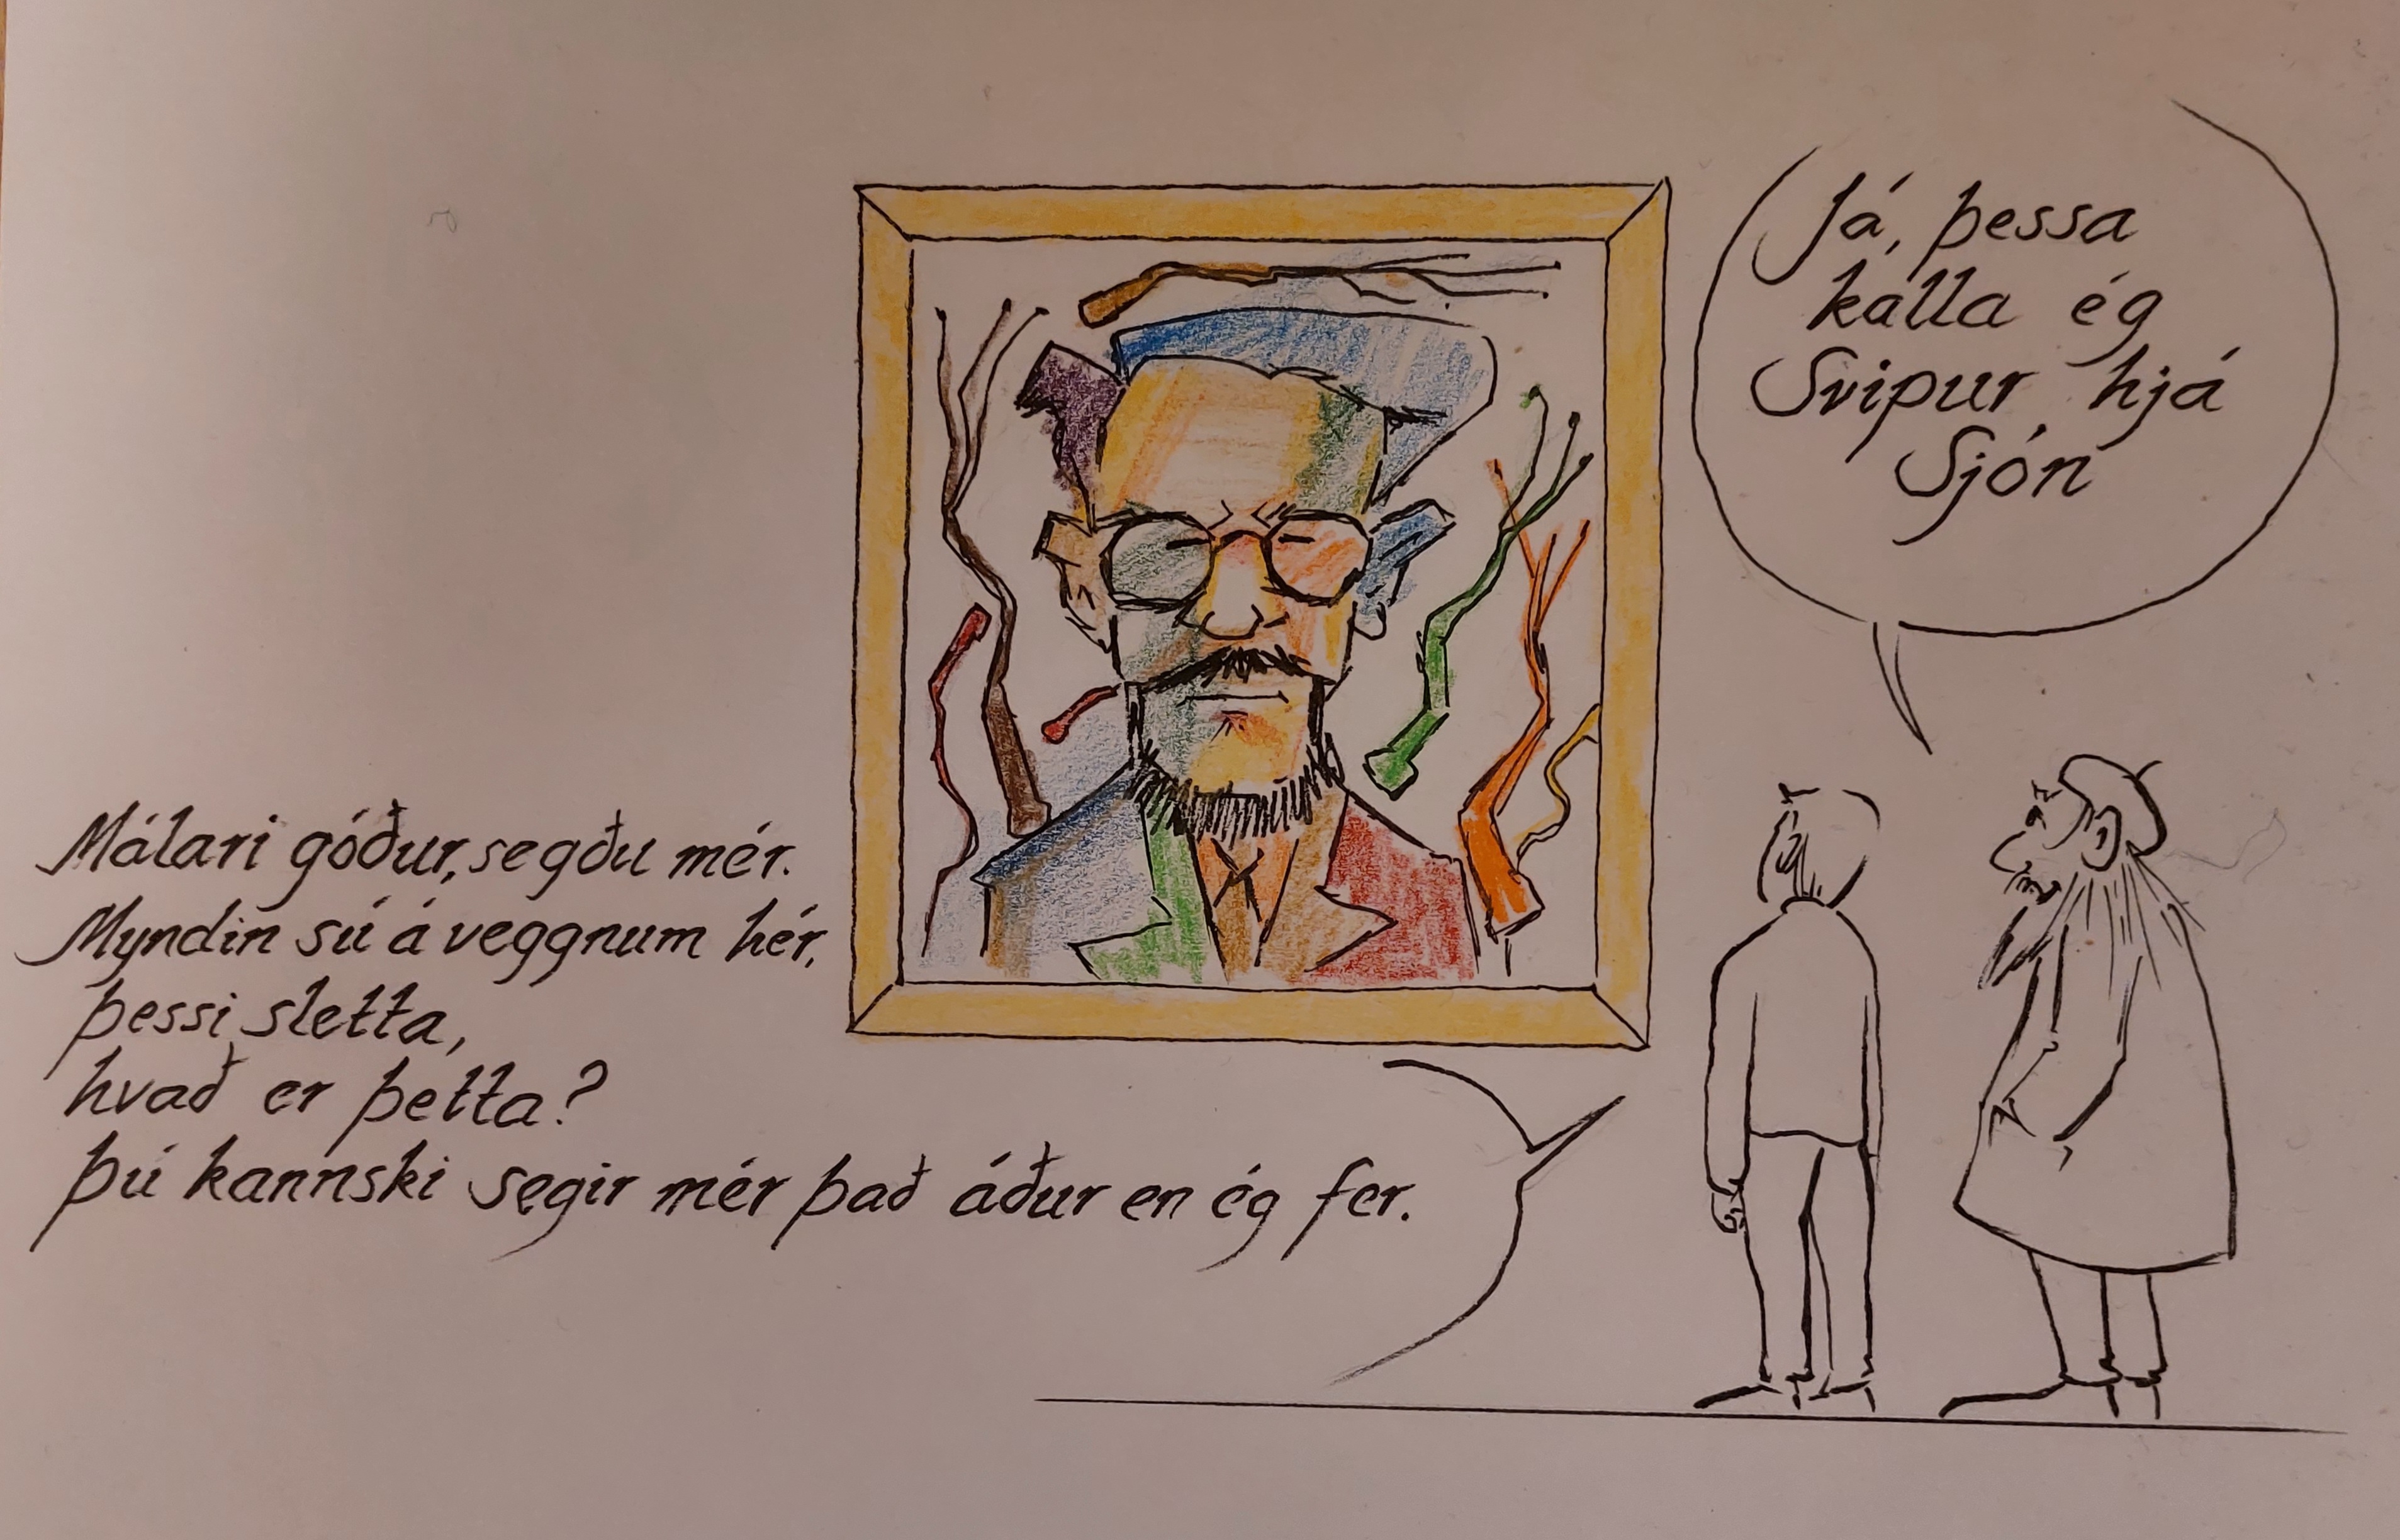 Málari góður, segðu mér.
Myndin sú á veggnum hér,
þessi sletta,
hvað er þetta?
Þú kannski segir mér það áður en ég fer.
Já, þessa
kalla ég
Svipur hjá
Sjón